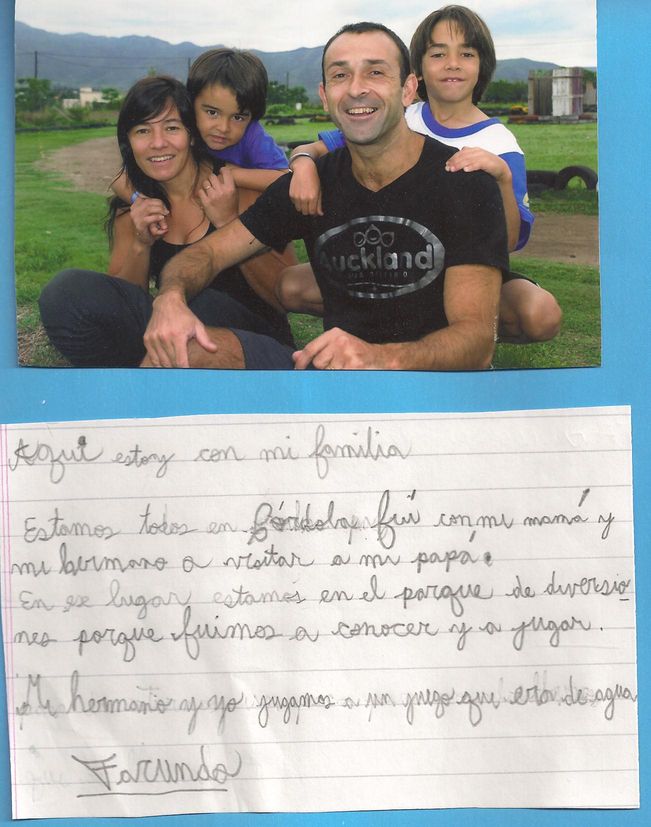 Auckland
Aquí estoy con mi familia
Estamos todos en Córdoba, fuí con mi mamá y
mi hermano a visitar a mi papá.
En ese lugar estamos en el parque de diversio
nes porque fuimos a conocer y a jugar.
Mi hermano y yo jugamos a un juego que era de agua
Facundo